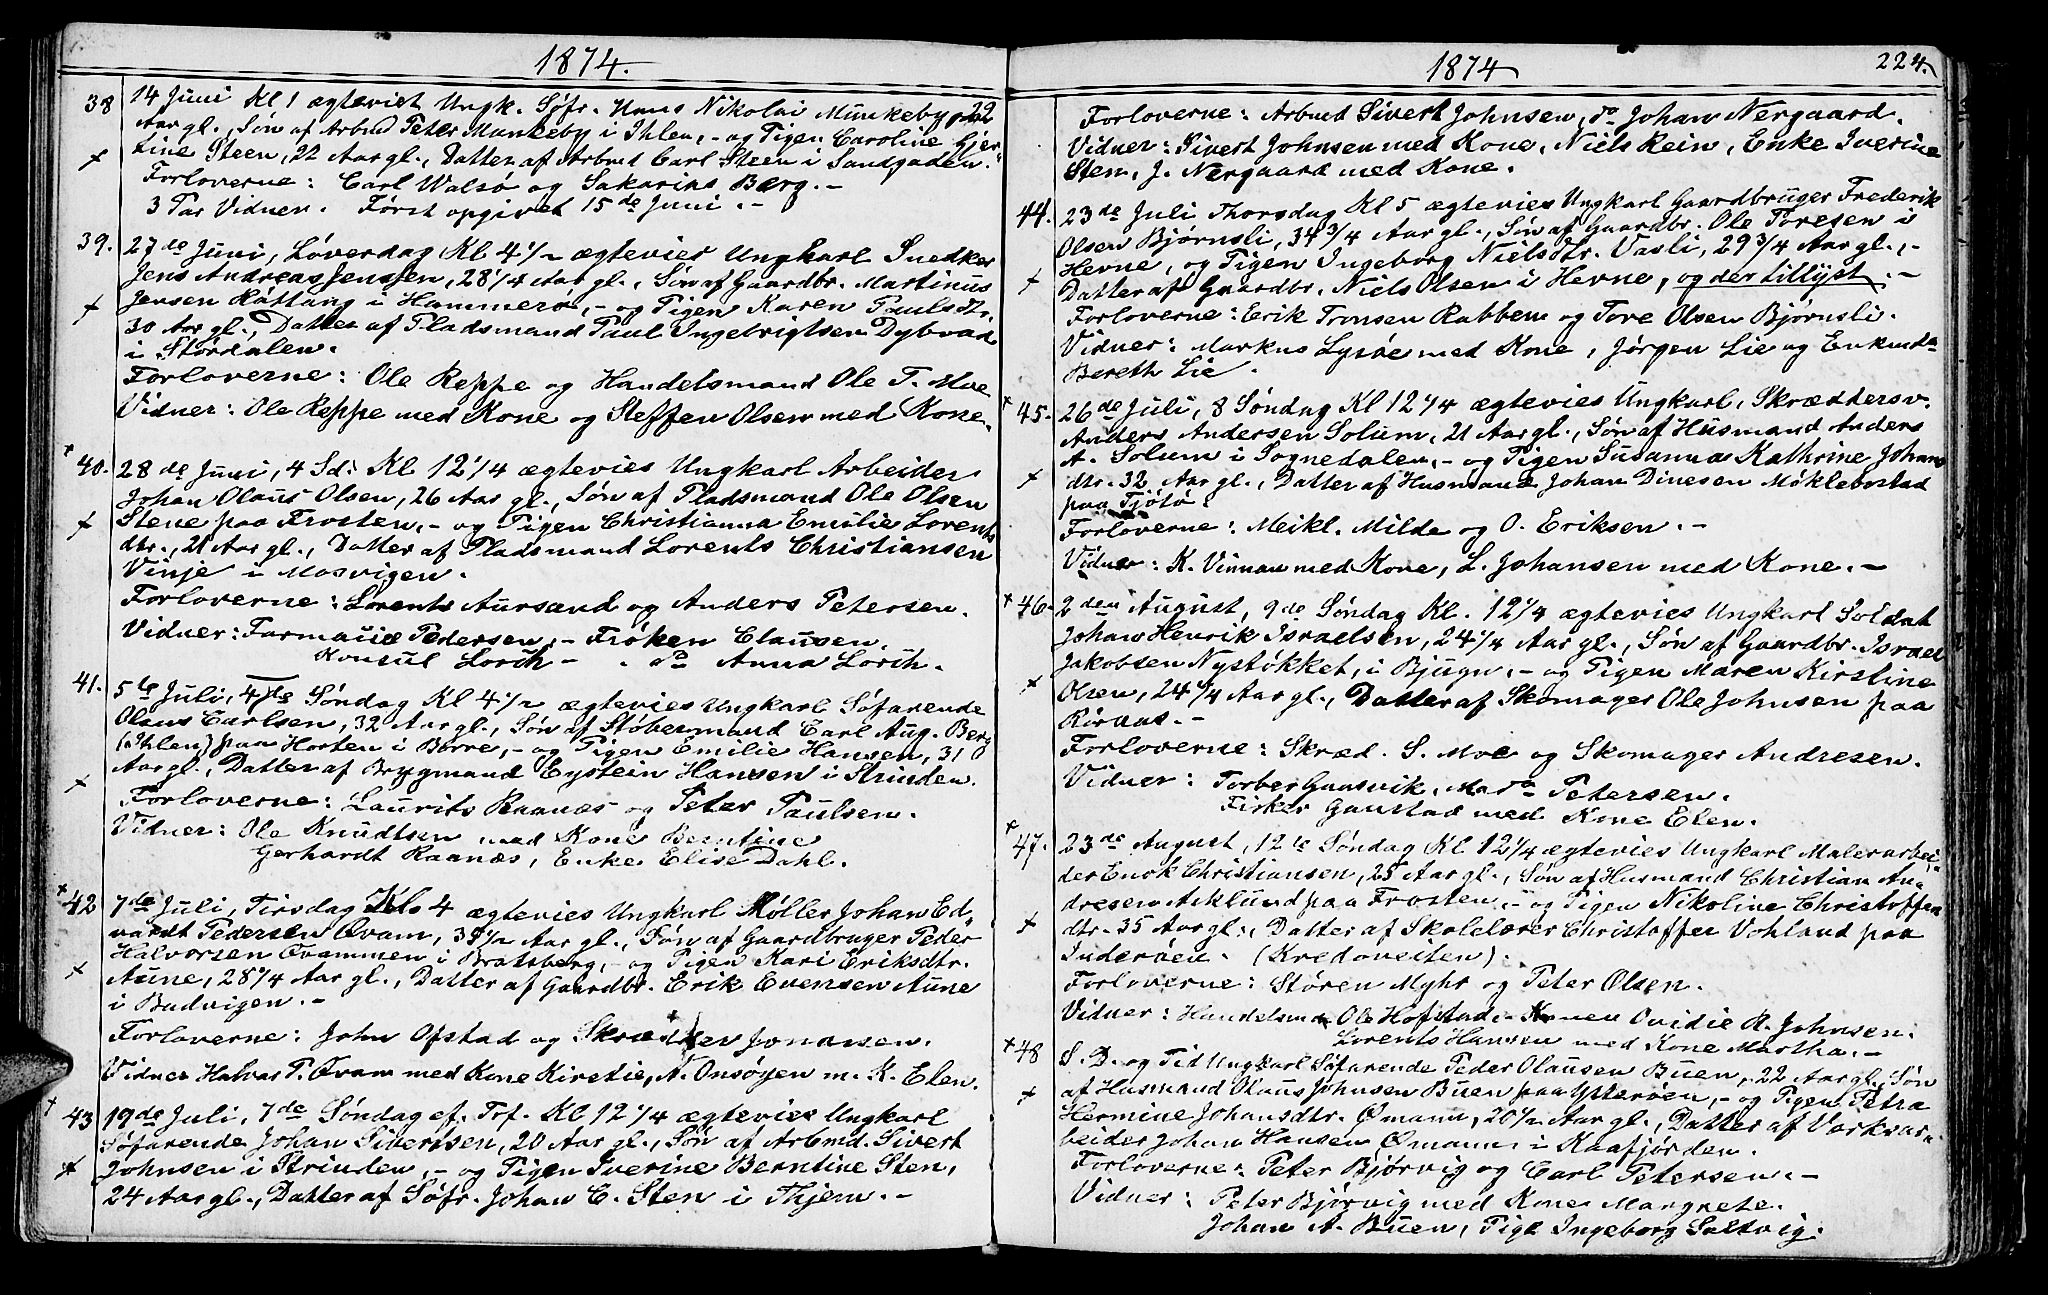 1874.
38 14 Juni Kl 1 ægteviet Ungk. Søfr. Hans Nikolai Munkeby, 22
Aar gl., Søn af Arbmd Peter Munkeby i Ihlen, - og Pigen Caroline Gjer-
tine Steen, 22 Aar gl., Datter af Arbmd Carl Steen i Sandgaden.
Forloverne: Carl Walsø og Sakarias Berg. -
3 Par Vidner. Først opgivet 15de Juni. -
39. 27de Juni, Løverdag Kl 4 1/2 ægtevies Ungkarl Snedker
Jens Andreas Jenssen, 28 1/4 Aar gl., Søn af Gaardbr. Martinus
Jensen Rättang i Hammerø, - og Pigen Karen Paulsdtr.
30 Aar gl., Datter af Pladsmand Paul Ingebrigtsen Dybvad
i Størdalen.
Forloverne: Ole Reppe og Handelsmand Ole T. Moe
Vidner: Ole Reppe med Kone og Steffen Olsen med Kone.
40. 28de Juni, 4 Sd: Kl 12 1/4 ægtevies Ungkarl Arbeider
Johan Olaus Olsen, 26 Aar gl., Søn af Pladsmand Ole Olsen
Stene paa Frosten, - og Pigen Christianna Emilie Lorents
dtr., 21 Aar gl., Datter af Pladsmand Lorents Christiansen
Vinje i Mosvigen.
Forloverne: Lorents Aursand og Anders Petersen.
Vidner: Farmand Pedersen, - Frøken Clausen.
Konsul Lorch - . do Anna Lorch.
41. 5te Juli, 4de Søndag Kl 4 1/2 ægtevies Ungkarl Søfarende
Olaus Carlsen, 32 Aar gl., Søn af Støbermand Carl Aug. Berg
(Ihlen) paa Horten i Borre, - og Pigen Emilie Hansen, 31
Aar gl., Datter af Brygmand Eystein Hansen i Strinden.
Forloverne: Laurits Raanæs og Peter Paulsen.
Vidner: Ole Knudtsen med Kone Berntine
Gerhardt Raanæs, Enke Elise Dahl.
42 7de Juli, Tirsdag Kl. 4 ægtevies Ungkarl Møller Johan Ed-
vardt Pedersen Qvam, 39 1/2 Aar gl., Søn af Gaardbruger Peder
Halvorsen Qvammen i Bratsberg, - og Pigen Kari Eriksdtr.
Aune, 28 1/4 Aar gl., Datter af Gaardbr. Erik Evensen Aune
i Budvigen. -
Forloverne: John Ofstad og Skrædder Jonassen.
Vidner Halvar P. Qvam med Kone Kirstie, N. Onsøyen m. K. Elen.
43 19de Juli, 7de Søndag ef. Tof. Kl 12 1/4 ægtevies Ungkarl
Søfarende Johan Sivertsen, 20 Aar gl., Søn af Arbmd. Sivert
Johnsen i Strinden, - og Pigen Iverine Berntine Sten,
24 Aar gl., Datter af Søfr. Johan C. Sten i Thjem. -
1874
224.
Forloverne: Arbmd Sivert Johnsen, do Johan Nergaard.
Vidner: Sivert Johnsen med Kone, Niels Rein, Enke Iverine
Sten, J. Nergaard med Kone.
44. 23de Juli Thorsdag Kl 5 ægtevies Ungkarl Gaardbruger Frederik
Olsen Bjørnsli, 34 3/4 Aar gl., Søn af Gaardbr. Ole Toresen i
Hevne, og Pigen Ingeborg Nielsdtr. Vasli, 29 3/4 Aar gl., -
Datter af Gaardbr. Niels Olsen i Hevne, og der tillyst. -
Forloverne: Erik Tronsen Rabben og Tore Olsen Bjørnsli.
Vidner: Markus Lysøe med Kone, Jørgen Lie og Enkmda
Bereth Lie.
45. 26de Juli, 8 Søndag Kl 12 1/4 ægtevies Ungkarl, Skræddersv.
Anders Andersen Solum, 21 Aar gl., Søn af Husmand Anders
A. Solum i Sognedalen, - og Pigen Susanna Kathrine Johans
dtr. 32 Aar gl., Datter af Husmand Johan Dinesen Møklebostad
paa Tjøtø.
Forloverne: Meikl. Milde og O. Eriksen. -
Vidner: K. Vinnan med Kone, L. Johansen med Kone. -
46. 2den August, 9de Søndag Kl. 12 1/4 ægtevies Ungkarl Soldat
Johan Henrik Israelsen, 24 1/4 Aar gl., Søn af Gaardbr. Israel
Jakobsen Nystøkket, i Bjugn, - og Pigen Maren Kirstine
Olsen, 24 1/4 Aar gl., Datter af Skomager Ole Johnsen paa
Røraas. -
Forloverne: Skræd. S. Moe og Skomager Andresen.
Vidner: Torber Gaasvik, Mad. Petersen.
Fisker Gaustad med Kone Elen.
47. 23de August, 12te Søndag Kl 12 1/4 ægtevies Ungkarl Malerarbei-
der Enok Christiansen, 25 Aar gl., Søn af Husmand Christian An-
dresen Aeklund paa Frosten, - og Pigen Nikoline Christoffer
dtr. 35 Aar gl., Datter af Skolelærer Christoffer Vohland paa
Inderøen. (Kredoveiten).
Forloverne: Støren Myhr og Peter Olsen.
Vidner: Handelsmd Ole Hofstad. Konen Ovidie R. Johnsen.
Lorents Hansen med Kone Martha. -
48 S. D. og Tid Ungkarl Søfarende Peder Olausen Buen, 22 Aar gl., Søn
af Husmand Olaus Johnsen Buen paa Ytterøen, - og Pigen Petra
Hermine Johansdtr. Ømann, 20 1/2 Aar gl., Datter af Værkvar-
beider Johan Hansen Ømann i Kaafjorden.
Forloverne: Peter Bjørvig og Carl Petersen. -
Vidner: Peter Bjørvig med Kone Margrete.
Johan A. Buen, Pige Ingeborg Saltvig.